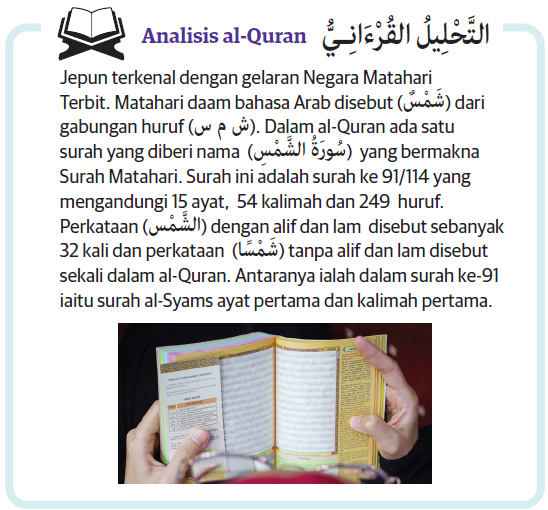 Analisis al-Quran التَّحْلِيلُ القُرْءَانِـيُّ
Jepun terkenal dengan gelaran Negara Matahari
Terbit. Matahari daam bahasa Arab disebut (شَمْسٌ) dari
gabungan huruf (ش م س). Dalam al-Quran ada satu
surah yang diberi nama (سُورَةُ الشَّمْسِ) yang bermakna
Surah Matahari. Surah ini adalah surah ke 91/114 yang
mengandungi 15 ayat, 54 kalimah dan 249 huruf.
Perkataan (الشَّمْس) dengan alif dan lam disebut sebanyak
32 kali dan perkataan (شَمْسًا) tanpa alif dan lam disebut
sekali dalam al-Quran. Antaranya ialah dalam surah ke-91
iaitu surah al-Syams ayat pertama dan kalimah pertama.